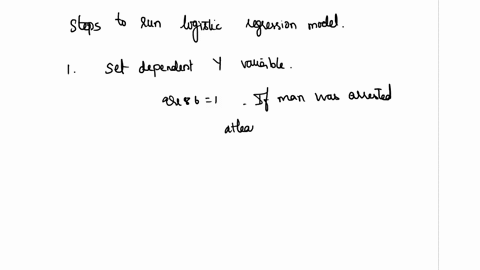 Steps to run logistic regression model.
1. Set dependent Y variable.
arr86 = 1. If man was arrested
atlea